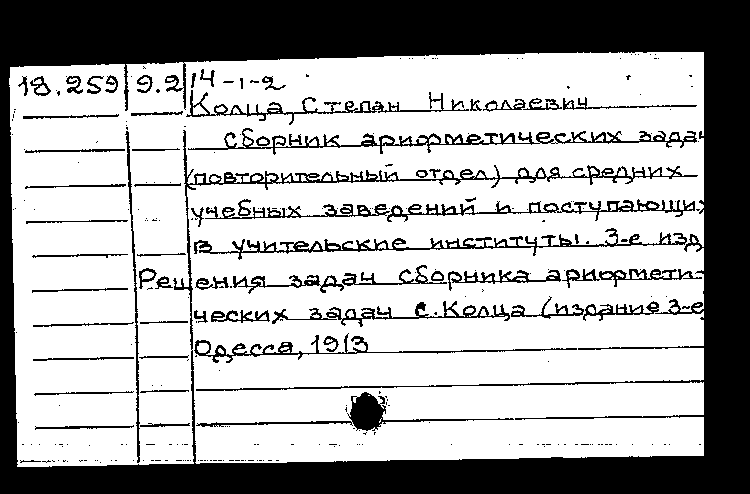 18.259 9.2 14-1-2
Колца, Степан Николаевич
сборник арифметических задач
(повторительный отдел) для средних
учебных заведений и поступающих
в учительские институты. 3-е изд
Решения задач сборника арифмети-
ческих задач с. Колца (издание 3-е)
Одесса, 1913